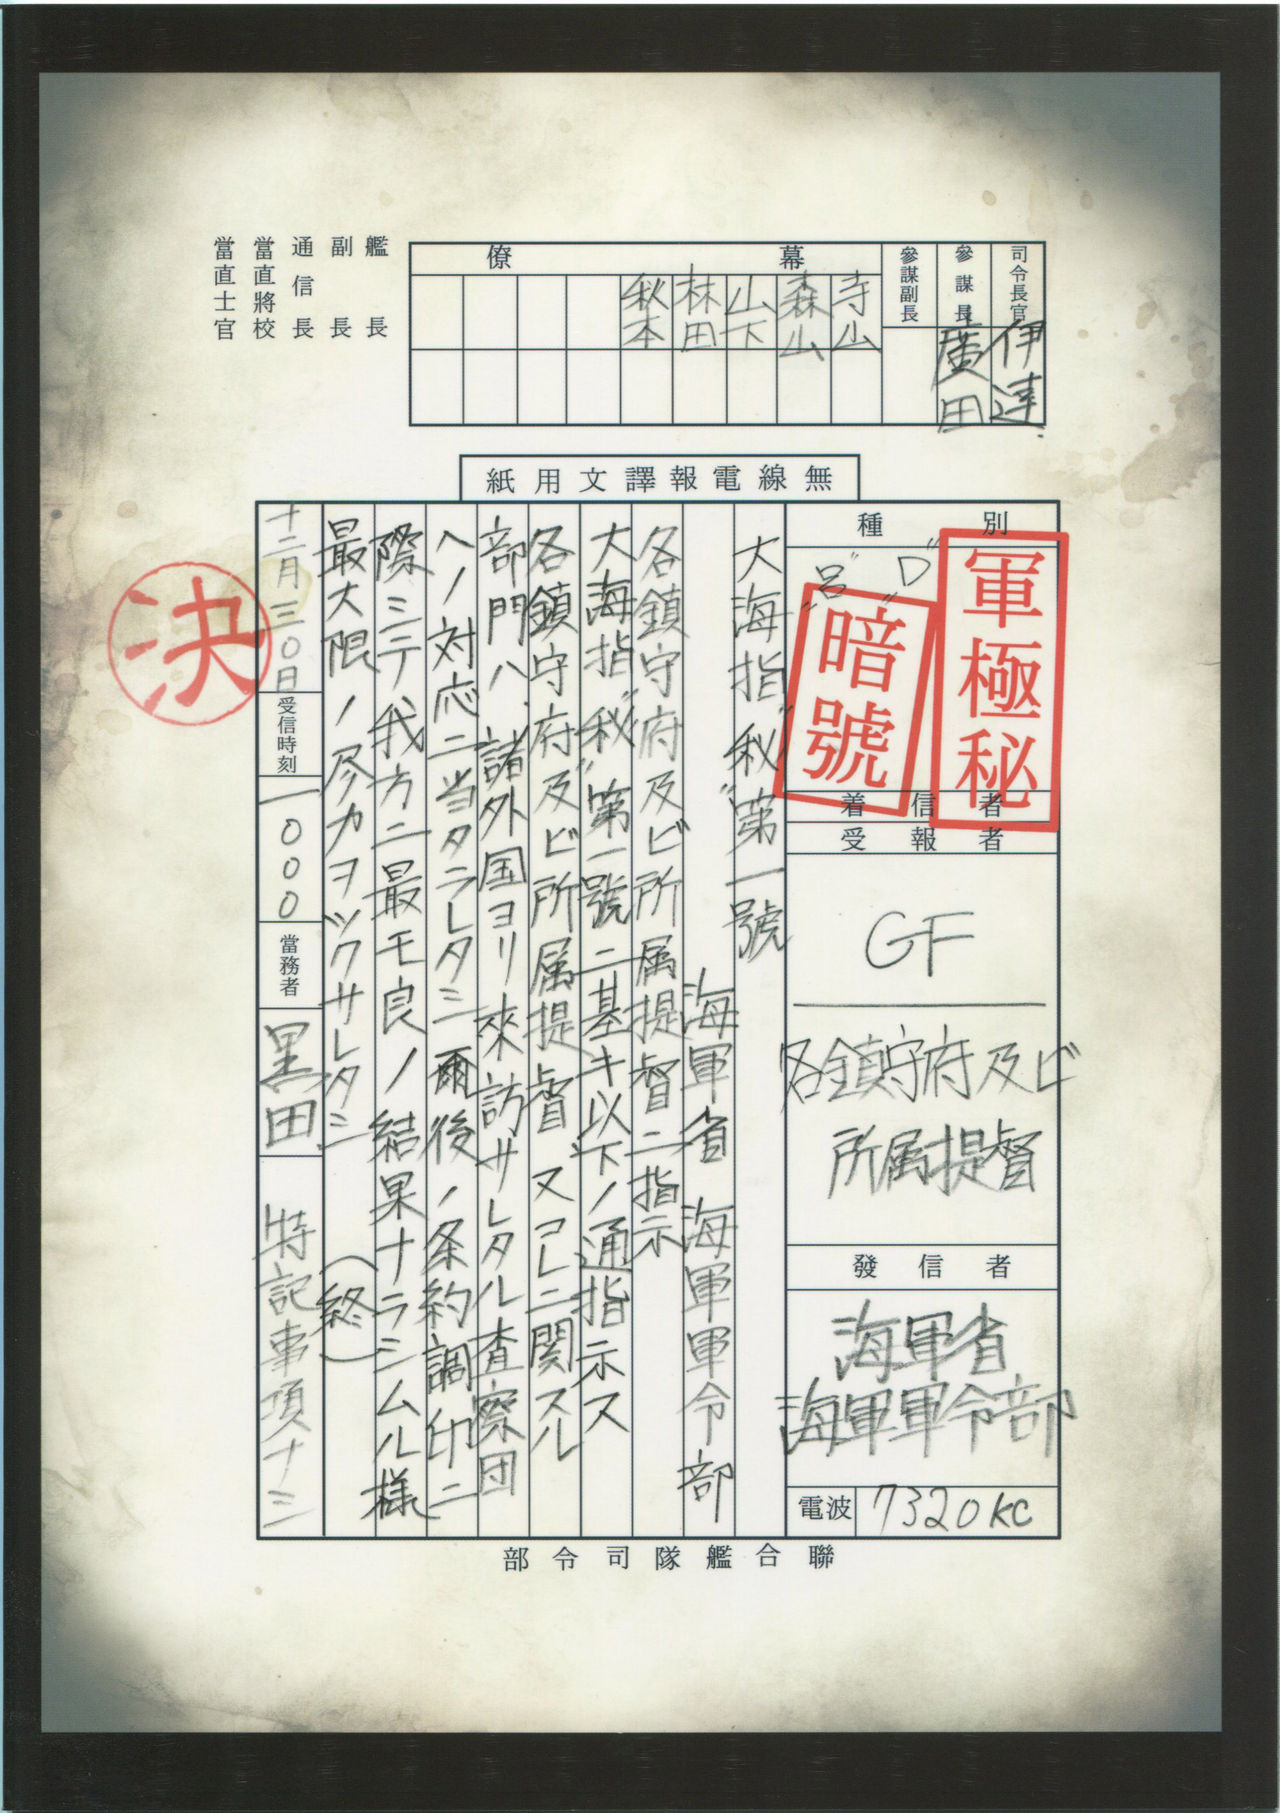 司令長官
伊達
參謀長
廣田
參謀副長
幕僚
寺山
森山
山下
林田
秋本
艦長
副長
通信長
當直將校
當直士官
無線電報譯文用紙
種別
軍極秘
暗號
"D"
"呂"
着信者
受報者
GF
各鎮守府及ビ
所属提督
發信者
海軍省
海軍軍令部
電波
7320KC
大海指"秘"第一號
海軍省 海軍軍令部
各鎮守府及ビ所属提督ニ指示
大海指"秘"第一號ニ基キ以下ノ通指示ス
各鎮守府及ビ所属提督、又コレニ関スル
部門ハ、諸外国ヨリ來訪サレタル査察団
ヘノ対応ニ当タラレタシ 爾後ノ条約調印ニ
際シテ我方ニ最モ良ノ結果ナラシムル様
最大限ノ尽力ヲツクサレタシ (終)
十二月三〇日
受信時刻
一〇〇〇
當務者
黒田
特記事項ナシ
決
聯合艦隊司令部